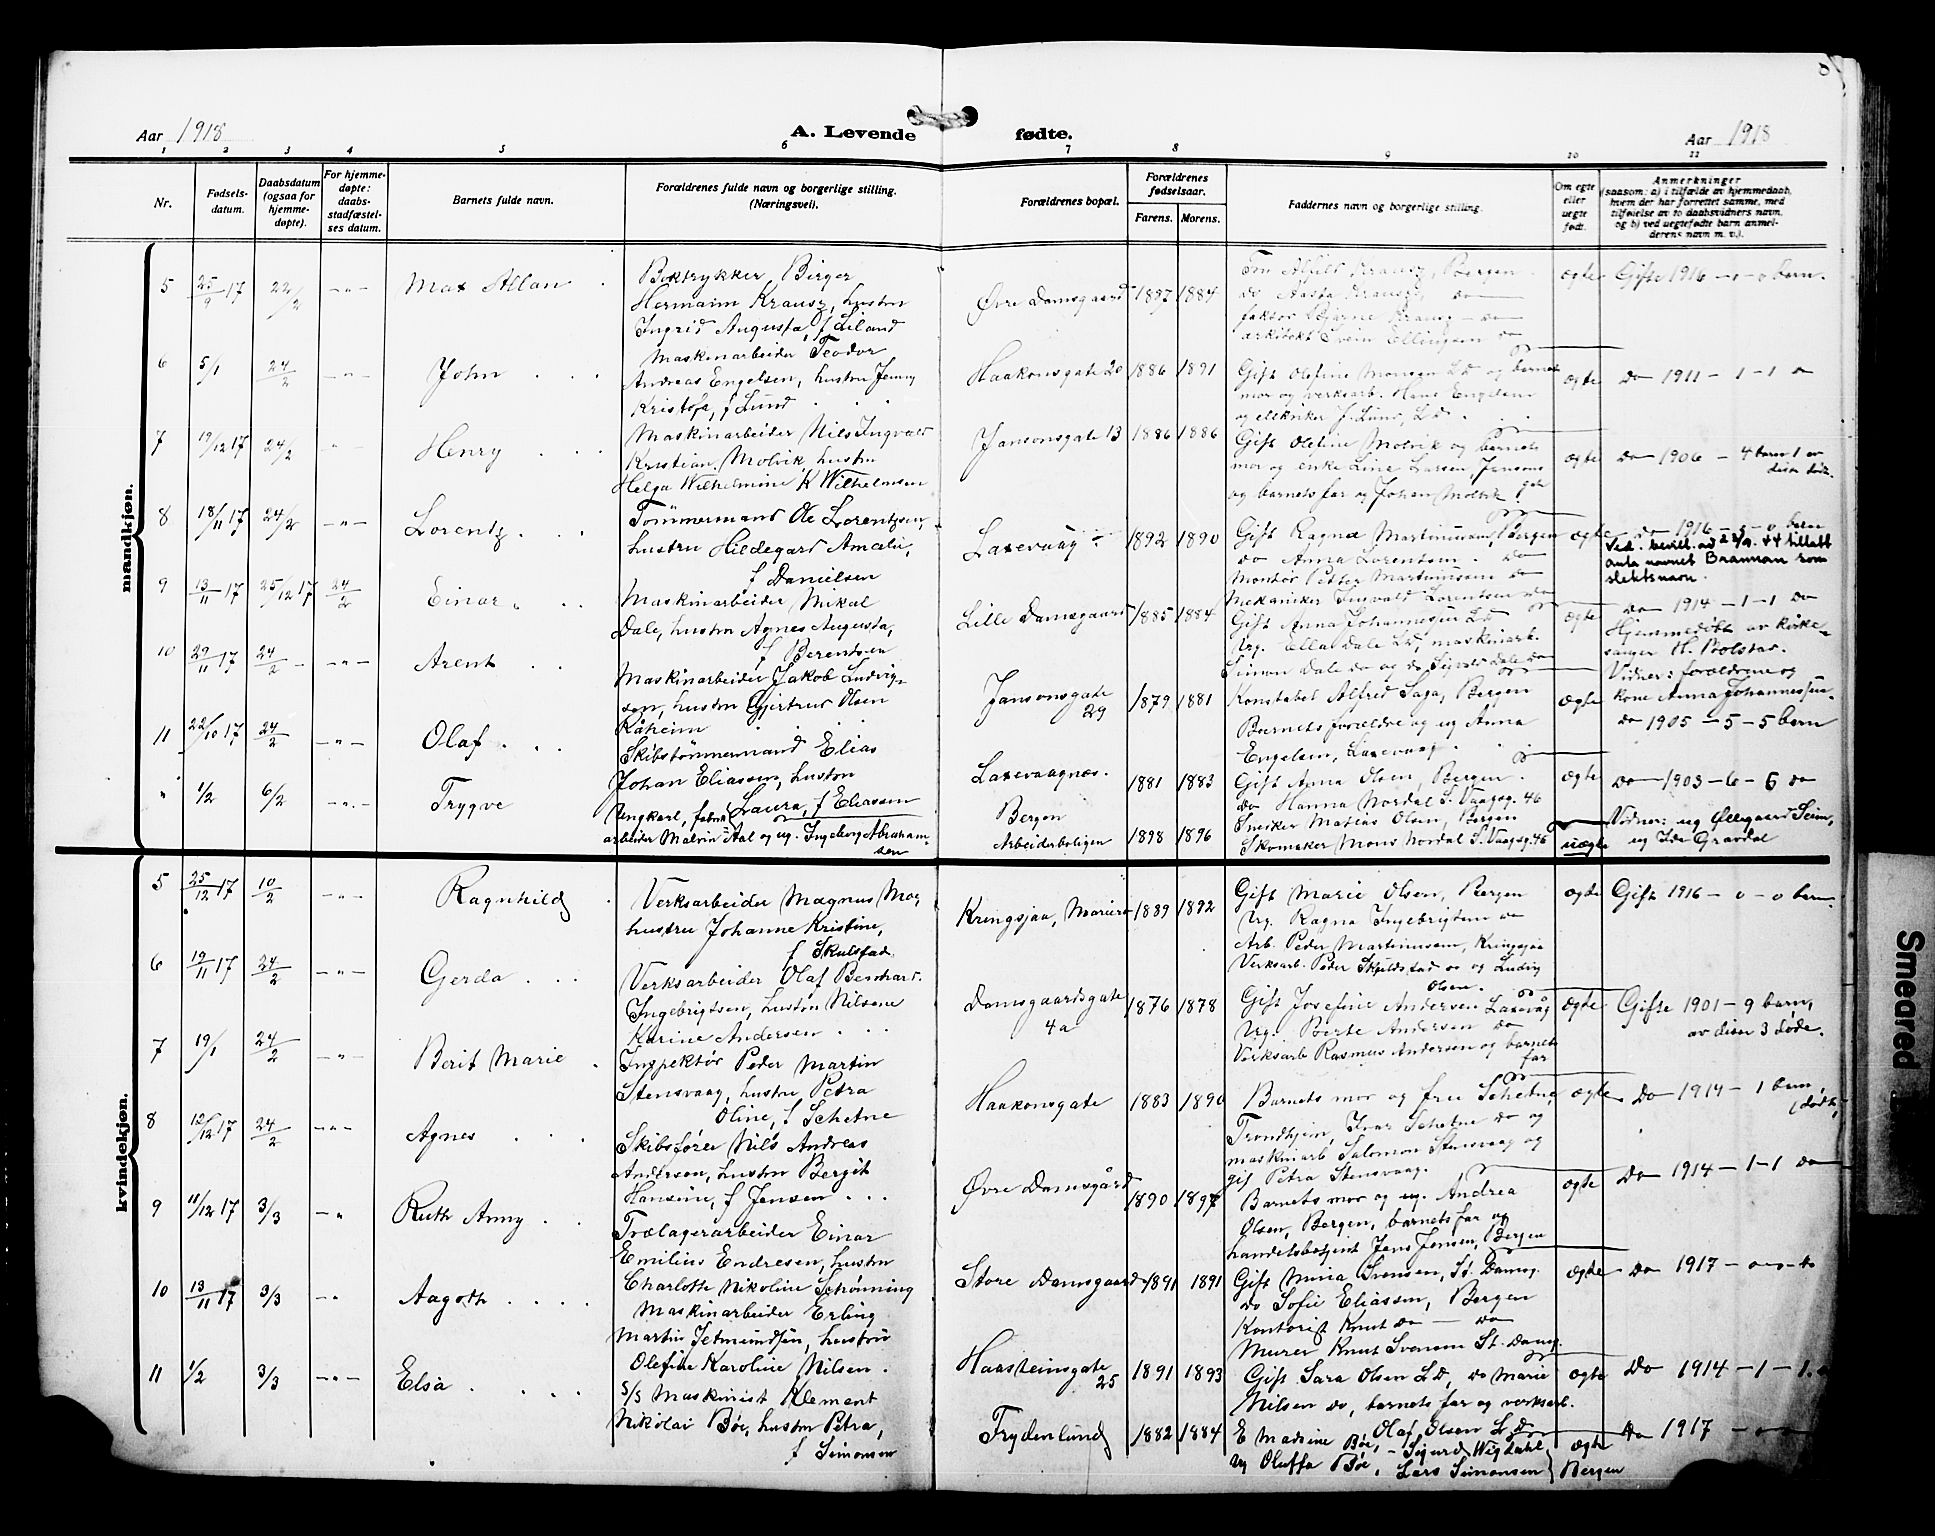 Aar 1918
A. Levende fødte.
Aar 1918
1 2 3 4 5 6 7 8 9 10 11
Nr.
Fødsels-
datum.
Daabsdatum
(ogsaa for
hjemme-
døpte).
For hjemme-
døpte:
daabs-
stadfæstel-
ses datum.
Barnets fulde navn.
Forældrenes fulde navn og borgerlige stilling.
(Næringsvei).
Forældrenes bopæl.
Forældrenes
fødselsaar.
Farens. Morens.
Faddernes navn og borgerlige stilling.
Om egte
eller
uegte
født.
Anmerkninger
(saasom: a) i tilfælde av hjemmedaab,
hvem der har forrettet samme, med
tilføielse av to daabsvidners navn,
og b) ved uegtefødte barn anmel-
derens navn m. v.).
mandkjøn.
5 25/9 17 22/2 -"- Max Allan
Boktrykker Birger
Hermann Krausz, hustru
Ingrid Augusta, f Liland
Øvre Damsgaard 1897 1884
Fru Alfild Krausz, Bergen
do Aasta Krausz, do
faktor Bjarne Krausz - do
arkitekt Svein Ellingsen do
ægte Gifte 1916 - 0 - 0 barn.
6 5/1 24/2 -"- John
Maskinarbeider Teodor
Andreas Engelsen, hustru Jenny
Kristofa, f Lund
Haakonsgate 20 1886 1891
Gift Olefine Monsen LD og barnets
mor og verksarb. Hans Engelsen
og elektriker J. Lund, L.D.
ægte Do 1911 - 1 - 1 do
7 19/12 17 24/2 " Henry
Maskinarbeider Nils Ingvald
Kristian Molvik, hustru
Helga Wilhelmine f Wilhelmsen
Jansonsgate 13 1886 1886
Gift Olefine Molvik og barnets
mor og enke Line Larsen, Jansons
gt
og barnets far og Johan Molvik
ægte Do 1906 - 4 barn 1 av
disse død.
8 18/11 17 24/2 -"- Lorentz
Tømmermand Ole Lorentzen,
hustru Hildegard Amalie,
f Danielsen
Laxevaag 1892 1890
Gift Ragna Martinussen, Bergen
do Anna Lorentsen do
Montør Petter Martinussen do
Mekaniker Ingvald Lorentsen do
ægte do 1916 - 0 - 0 barn
Ved. bevill. av 22/9. 44 tillatt
anta navnet Brannan som
slektsnavn.
9 13/11 17 25/12 17 24/2 Einar
Maskinarbeider Mikal
Dale, hustru Agnes Augusta,
f Berentsen
Lille Damsgaard 1885 1884
Gift Anna Johannessen LD
Ug. Ella Dale LD, maskinarb.
Simon Dale do og do Sigvald Dale do
ægte do 1914 - 1 - 1 do
Hjemmedøbt av kirke-
sanger H. Bolstad.
Vidner: forældrene og
kone Anna Johannessen
10 29/11 17 24/2 -"- Arent
Maskinarbeider Jakob Ludvig-
sen, hustru Gjertrud Olsen
Råheim
Jansonsgate
29 1879 1881
Konstabel Alfred Saga, Bergen
Barnets forældre og ug Anna
Engelsen, Laxevaag
ægte do 1905 - 5 - 5 barn
11 22/10 17 24/2 -"- Olaf
Skibstømmermand Elias
Johan Eliassen, hustru
Laura, f Eliassen
Laxevaagnes. 1881 1883
Gift Anna Olsen, Bergen
do Hanna Nordal S. Vaagsg. 46
Snedker Matias Olsen, Bergen
Skomaker Mons Nordal S. Vaagsg. 46
ægte Do 1903 - 6 - 6 do
" 1/2 6/2 -"- Trygve
Ungkarl, fabrik
arbeider Malvin Aal og ug. Ingeborg Abraham-
sen
Bergen
Arbeiderboligen 1898 1896
uægte Vidner: ug Øllegaard Seim,
ug Ida Gravdal
kvindekjøn.
5 25/12 17 10/2 -"- Ragnhild
Verksarbeider Magnus Moe,
hustru Johanne Kristine,
f Skulstad
Kringsjaa, 1889 1892
Gift Marie Olsen, Bergen
Ug. Ragna Ingebrigtsen do
Arb. Peder Martinussen, Kringsjaa
Verksarb. Peder Skjulstad do og Ludvig
Olsen.
ægte Gift 1916 - 0 - 0 barn
6 19/11 17 24/2 -"- Gerda
Verksarbeider Olaf Bernhard
Ingebrigtsen, hustru Nilsene
Karine Andersen
Damsgaardsgate
4a 1876 1878
Gift Josefine Andersen Laxevåg
Ug. Berte Andersen do
Verksarb Rasmus Andersen og barnets
far
ægte Gifte 1901 - 9 barn,
av disse 3 døde.
7 19/1 24/2 -"- Berit Marie
Inspektør Peder Martin
Stensvaag, hustru Petra
Oline, f Schetne
Haakonsgate 1883 1890
Barnets mor og fru Schetne
Trondhjem, Ivar Schetne do og
maskinarb Salomon Stensvaag og
gif Petra Stensvaag.
ægte Do 1914 - 1 barn,
1 dødt
8 12/12 17 24/2 -"- Agnes
Skibsfører Nils Andreas
Andersen, hustru Bergit
Hansine, f Jensen
Øvre Damsgård 1890 1897
Barnets mor og ug. Andrea
Olsen, Bergen, barnets far og
handelsbetjent Jens Jensen, Bergen
ægte Do 1914 - 1 - 1 do
9 11/12 17 3/3 -" Ruth Anny
Trælagerarbeider Einar
Emilius Endresen, hustru
Charlotte Nikoline Schønning
Store Damsgaard 1891 1891
Gift Mina Svensen, St. Damsg.
do Sofie Eliassen, Bergen
Kontorist Knut do - do
Murer Knut Svensen St. Damsg.
ægte Do 1917 - 0 - 0
10 13/11 17 3/3 -" Aagoth
Maskinarbeider Erling
Martin Setmundsen, hustru
Olefine Karoline Nilsen.
Haasteinsgate
25 1891 1893
Gift Sara Olsen LD, do Marie
Nilsen do, barnets far og verksarb.
Olaf Olsen LD
ægte Do 1914 - 1 - 1.
11 1/2 3/3 -"- Elsa
S/S Maskinist Klement
Nikolai Bøe, hustru Petra,
f Simonsen
Frydenlund 1882 1884
E Madsine Bøe, - Sigurd Wigdahl
Ug Oluffa Bøe, Lars Simonsen } Bergen
ægte Do 1917 - 0 - 0
Smeared